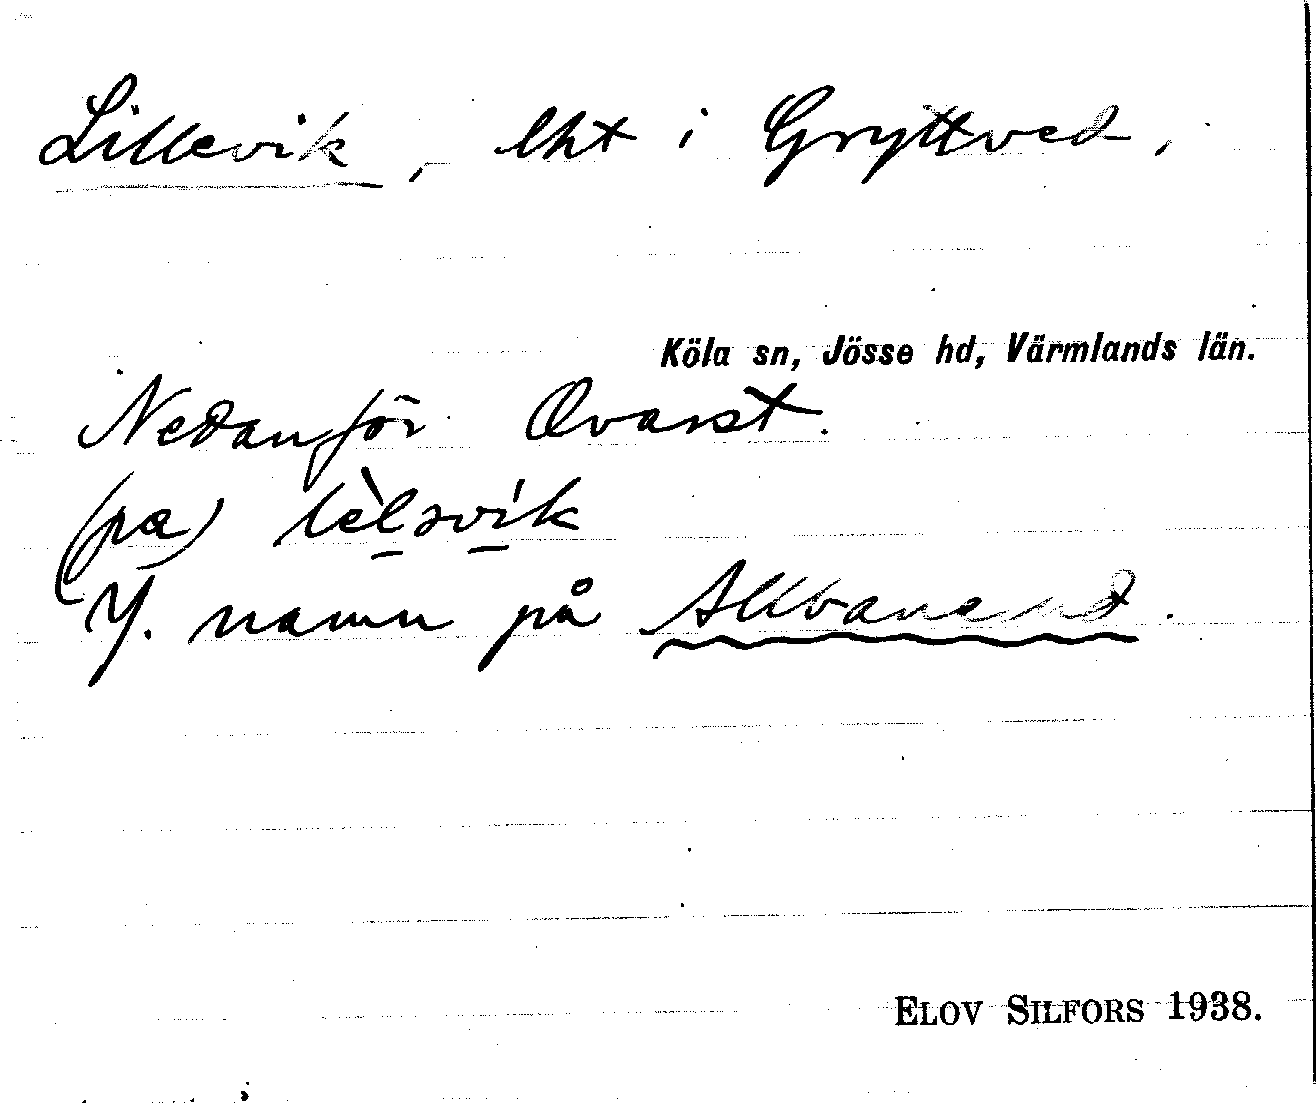 Lillevik, lht i Gryttved,
Köla sn, Jösse hd, Värmlands län.
Nedanför Qvarst.
(pa) lèlsvík
Y. namn på
ELOV SILFORS 1938.